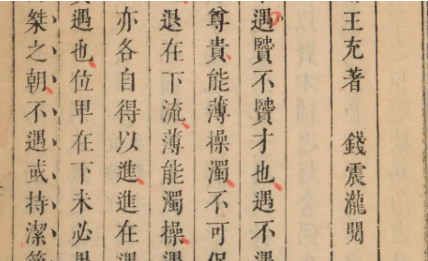 王充著 錢震瀧閱
遇賢不賢才也遇不遇
尊貴能薄操濁不可保
退在下流薄能濁操遇
亦各自得以進進在遇
遇也位卑在下未必
桀之朝不遇或持潔